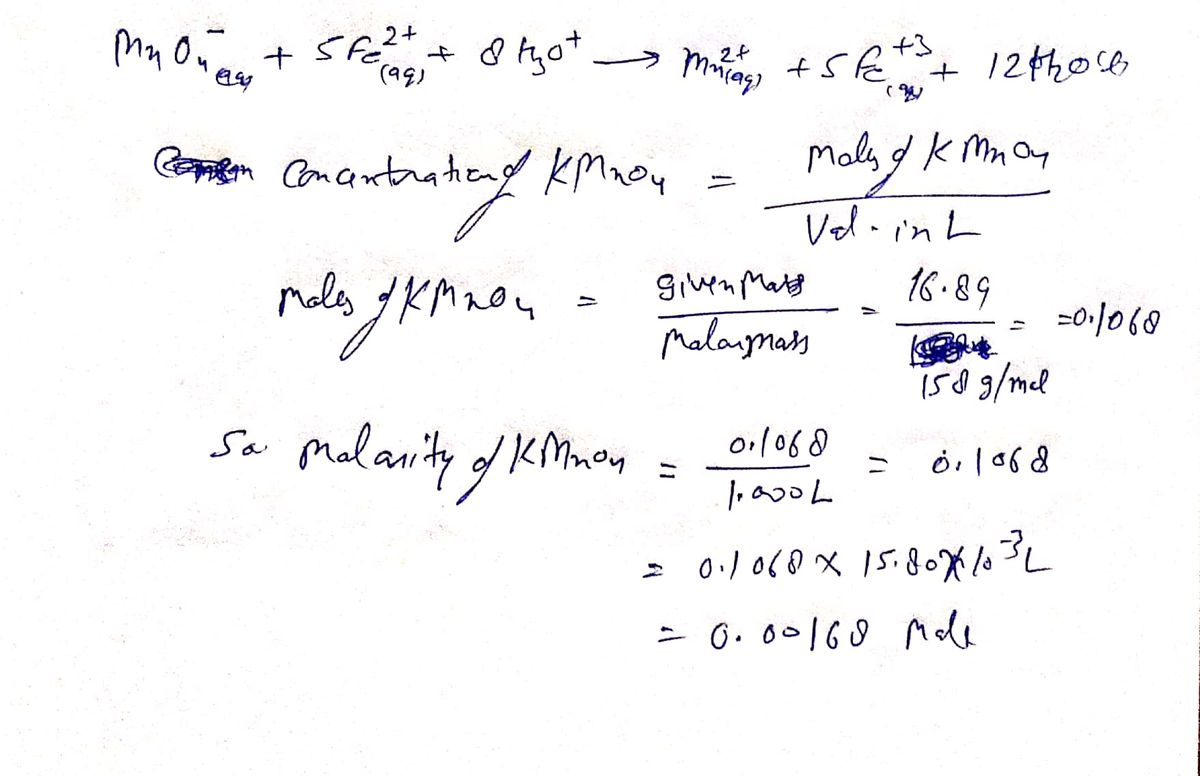 MnO₄⁻(aq) + 5Fe²⁺(aq) + 8H₃O⁺ → Mn²⁺(aq) + 5Fe⁺³(aq) + 12H₂O(l)
Concentration of KMnO₄ = Moles of KMnO₄ / Vol. in L
Moles of KMnO₄ = given Mass / Molar mass = 16.89 / 158 g/mol = =0.1068
So Molarity of KMnO₄ = 0.1068 / 1.000L = 0.1068
= 0.1068 × 15.80×10⁻³L
= 0.00168 Mole